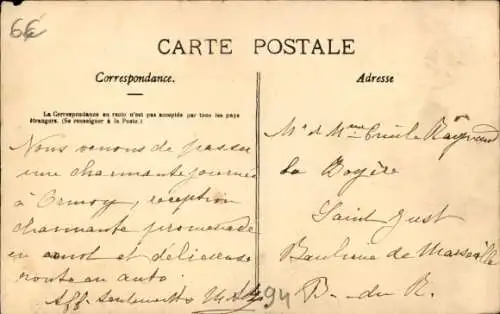 6€
CARTE POSTALE
Correspondance.
Adresse
La Correspondance au recto n'est pas acceptée par tous les pays
étrangers. (Se renseigner à la Poste.)
Nous venons de passer
une charmante journée
à Ormoy, réception
charmante promenade
en canot et délicieuse
route en auto.
Aff. sentiments
94
Mr et Mme Emile Raynaud
La
Saint Just
Banlieue de Marseille
B. du R.